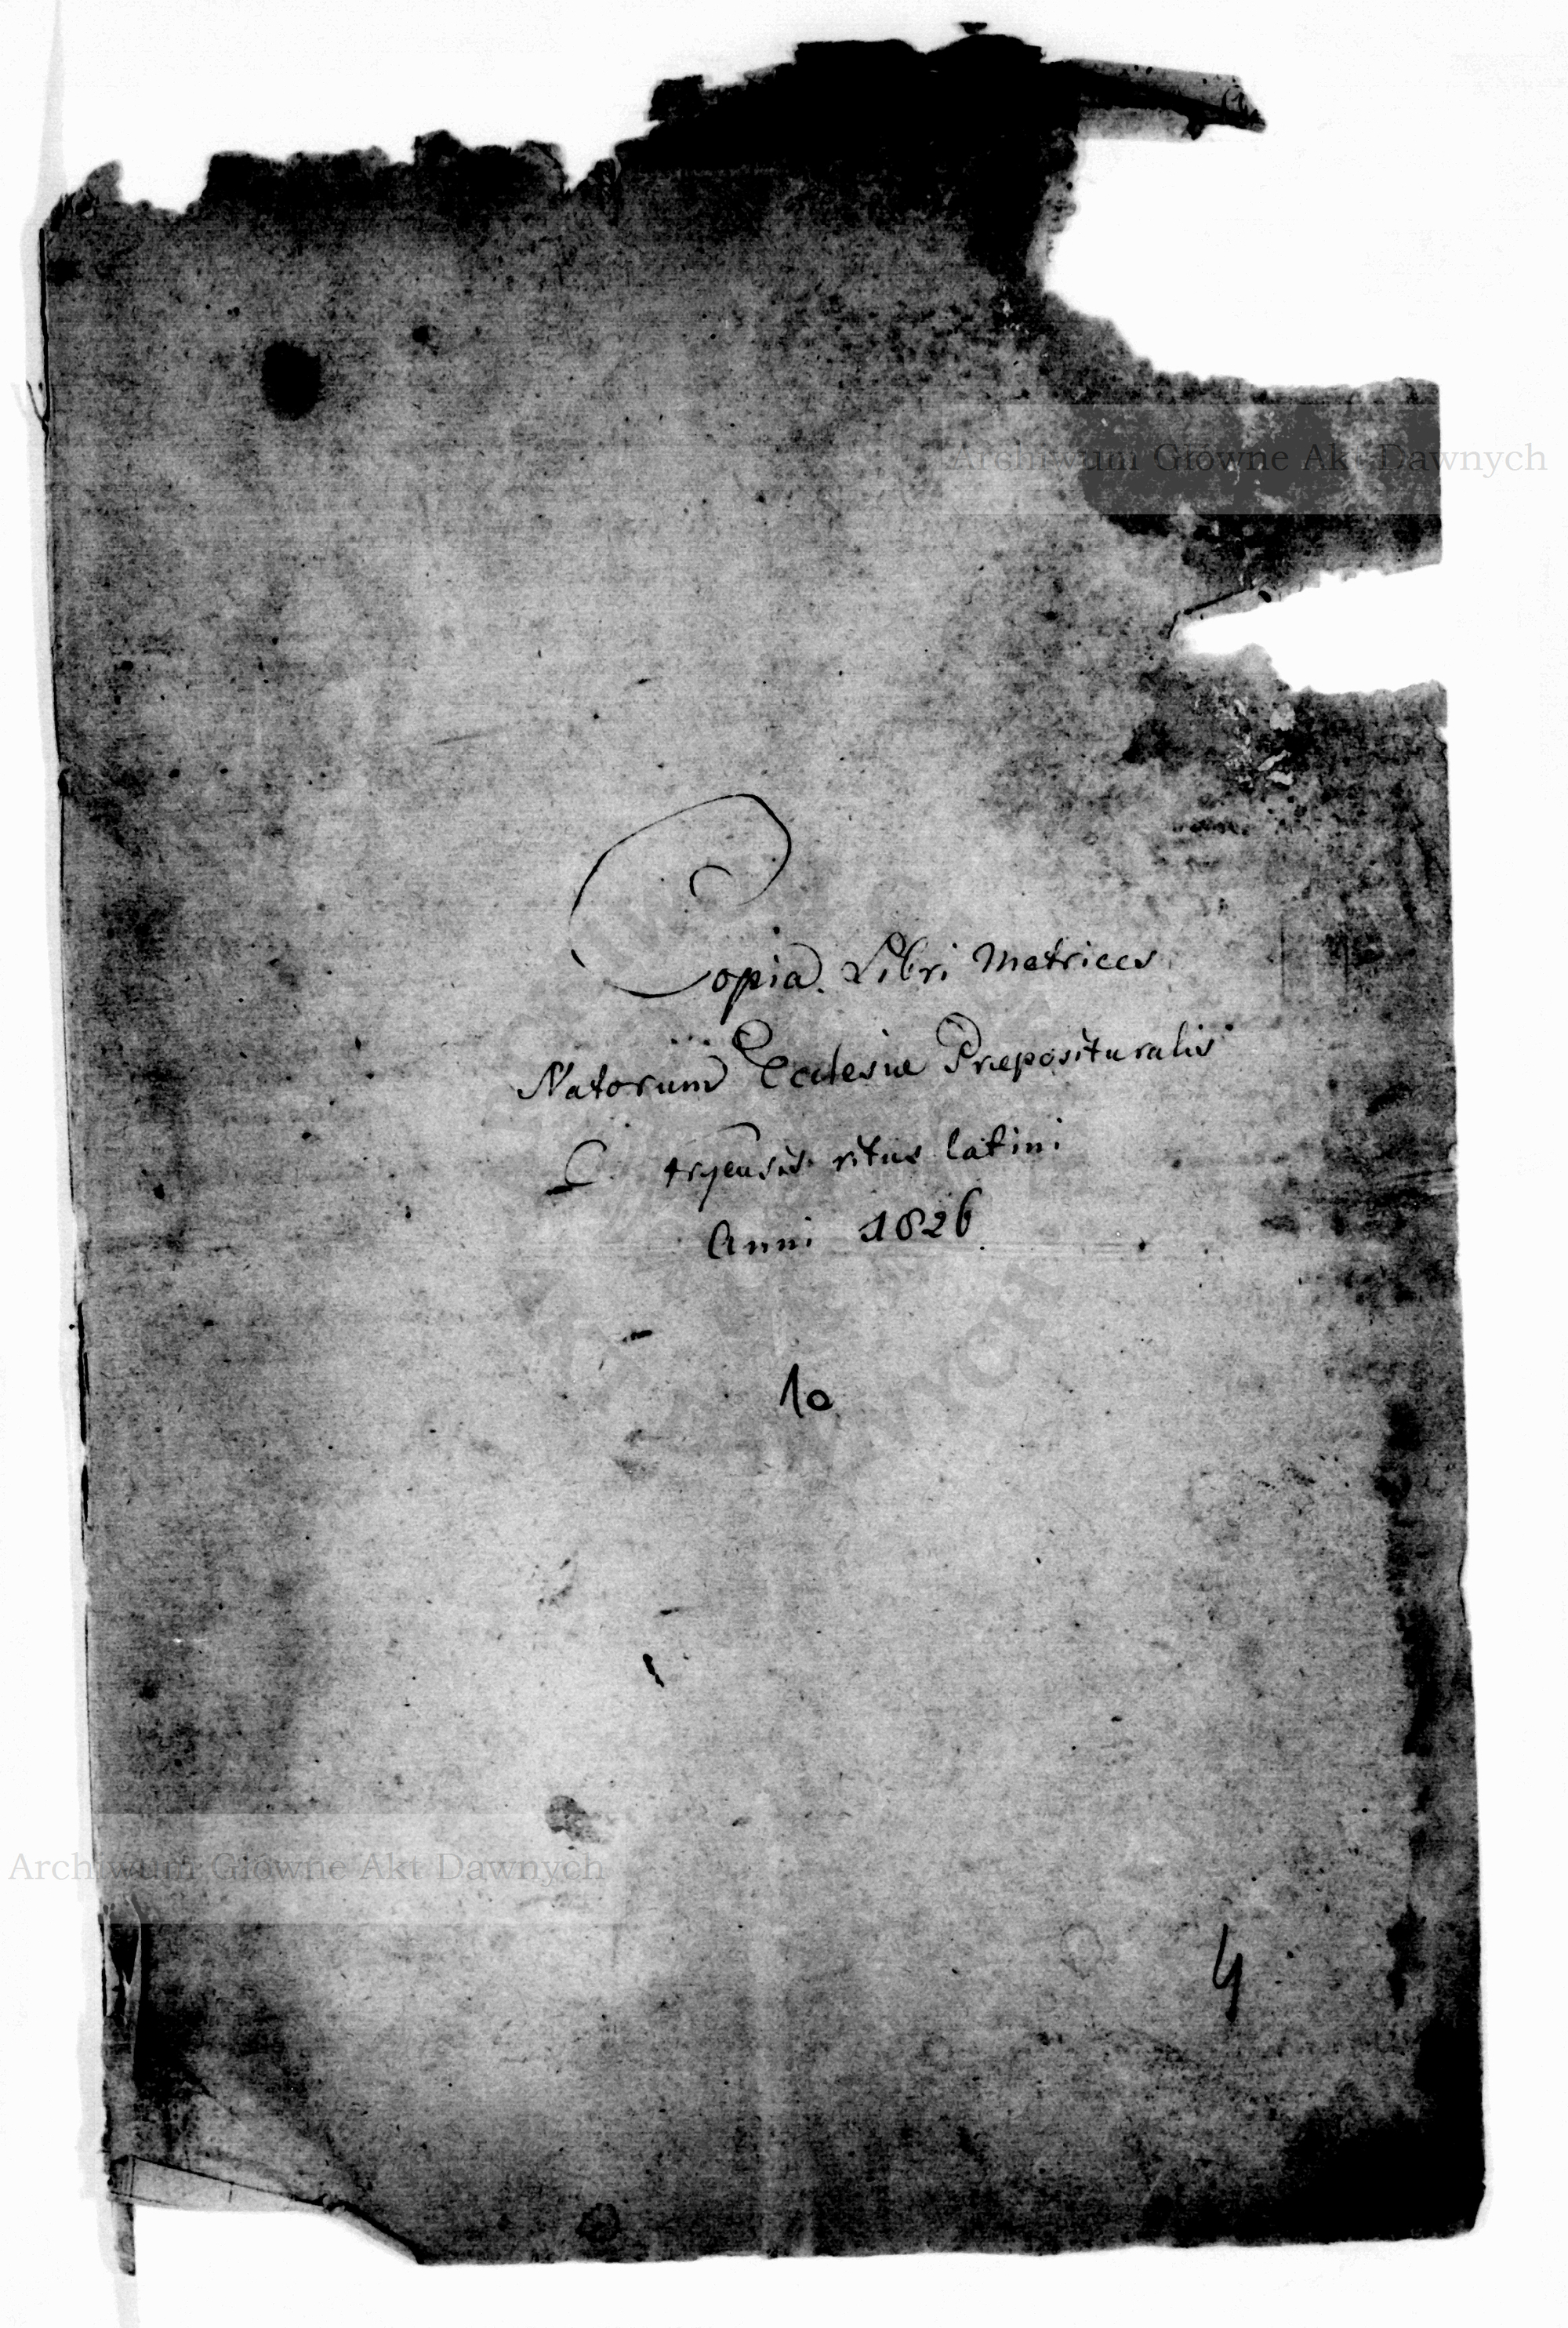 Archiwum Główne Akt Dawnych
Copia Libri Metrices
Natorum Ecclesiae Praeposituralis
ritus latini
Anni 1826
10
Archiwum Główne Akt Dawnych
4